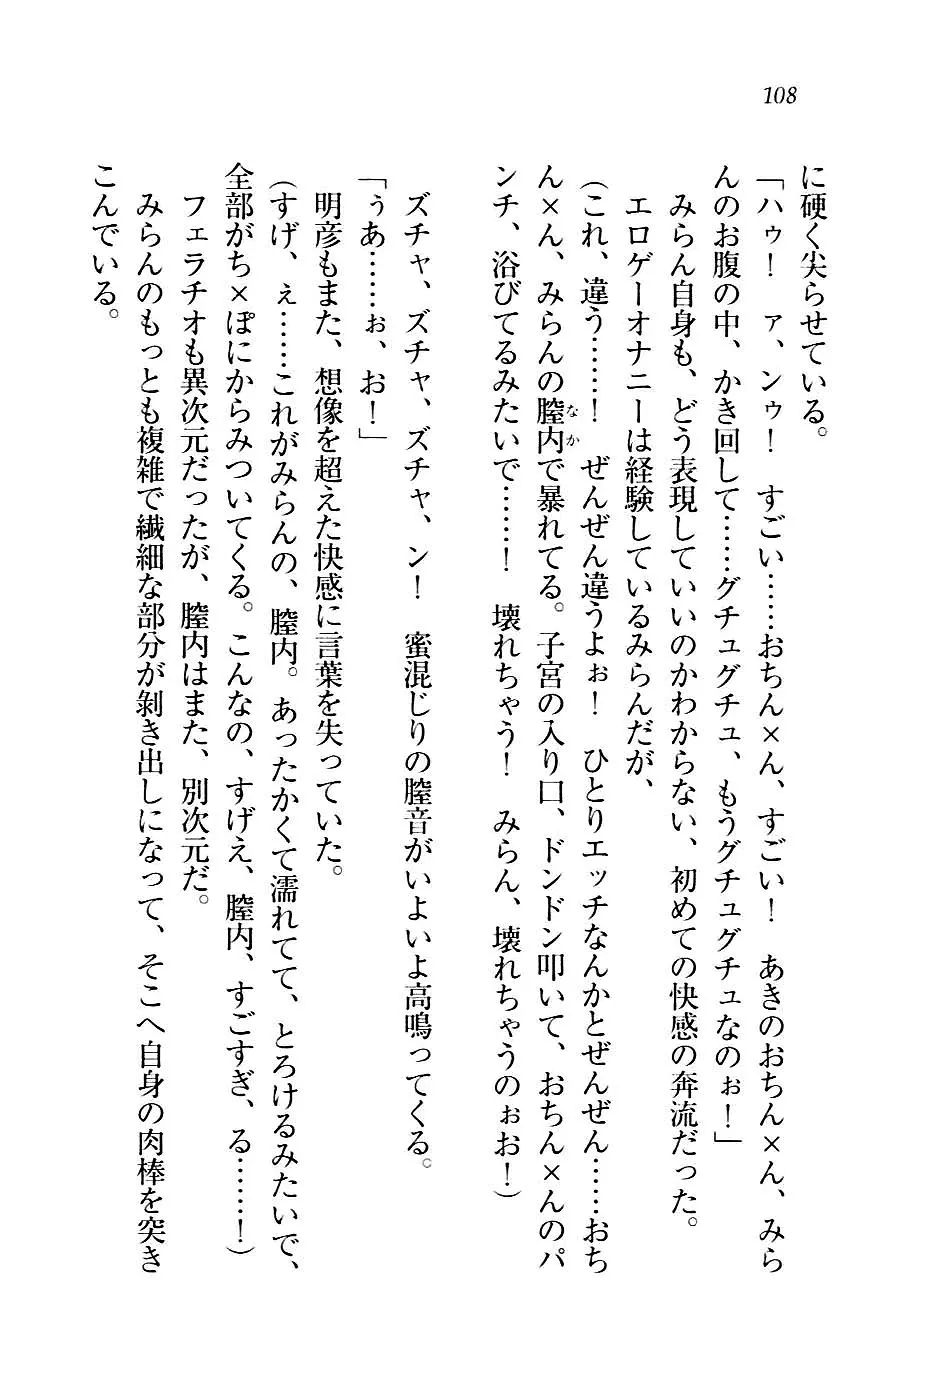 108
に硬く尖らせている。
「ハゥ！　ァ、ンゥ！　すごい……おちん×ん、すごい！　あきのおちん×ん、みら
んのお腹の中、かき回して……グチュグチュ、もうグチュグチュなのぉ！」
みらん自身も、どう表現していいのかわからない、初めての快感の奔流だった。
エロゲーオナニーは経験しているみらんだが、
（これ、違う……！　ぜんぜん違うよぉ！　ひとりエッチなんかとぜんぜん……おち
ん×ん、みらんの膣内なかで暴れてる。子宮の入り口、ドンドン叩いて、おちん×んのパ
ンチ、浴びてるみたいで……！　壊れちゃう！　みらん、壊れちゃうのぉお！）
ズチャ、ズチャ、ズチャ、ン！　蜜混じりの膣音がいよいよ高鳴ってくる。
「ぅあ……ぉ、お！」
明彦もまた、想像を超えた快感に言葉を失っていた。
（すげ、ぇ……これがみらんの、膣内。あったかくて濡れてて、とろけるみたいで、
全部がち×ぽにからみついてくる。こんなの、すげえ、膣内、すごすぎ、る……！）
フェラチオも異次元だったが、膣内はまた、別次元だ。
みらんのもっとも複雑で繊細な部分が剝き出しになって、そこへ自身の肉棒を突き
こんでいる。